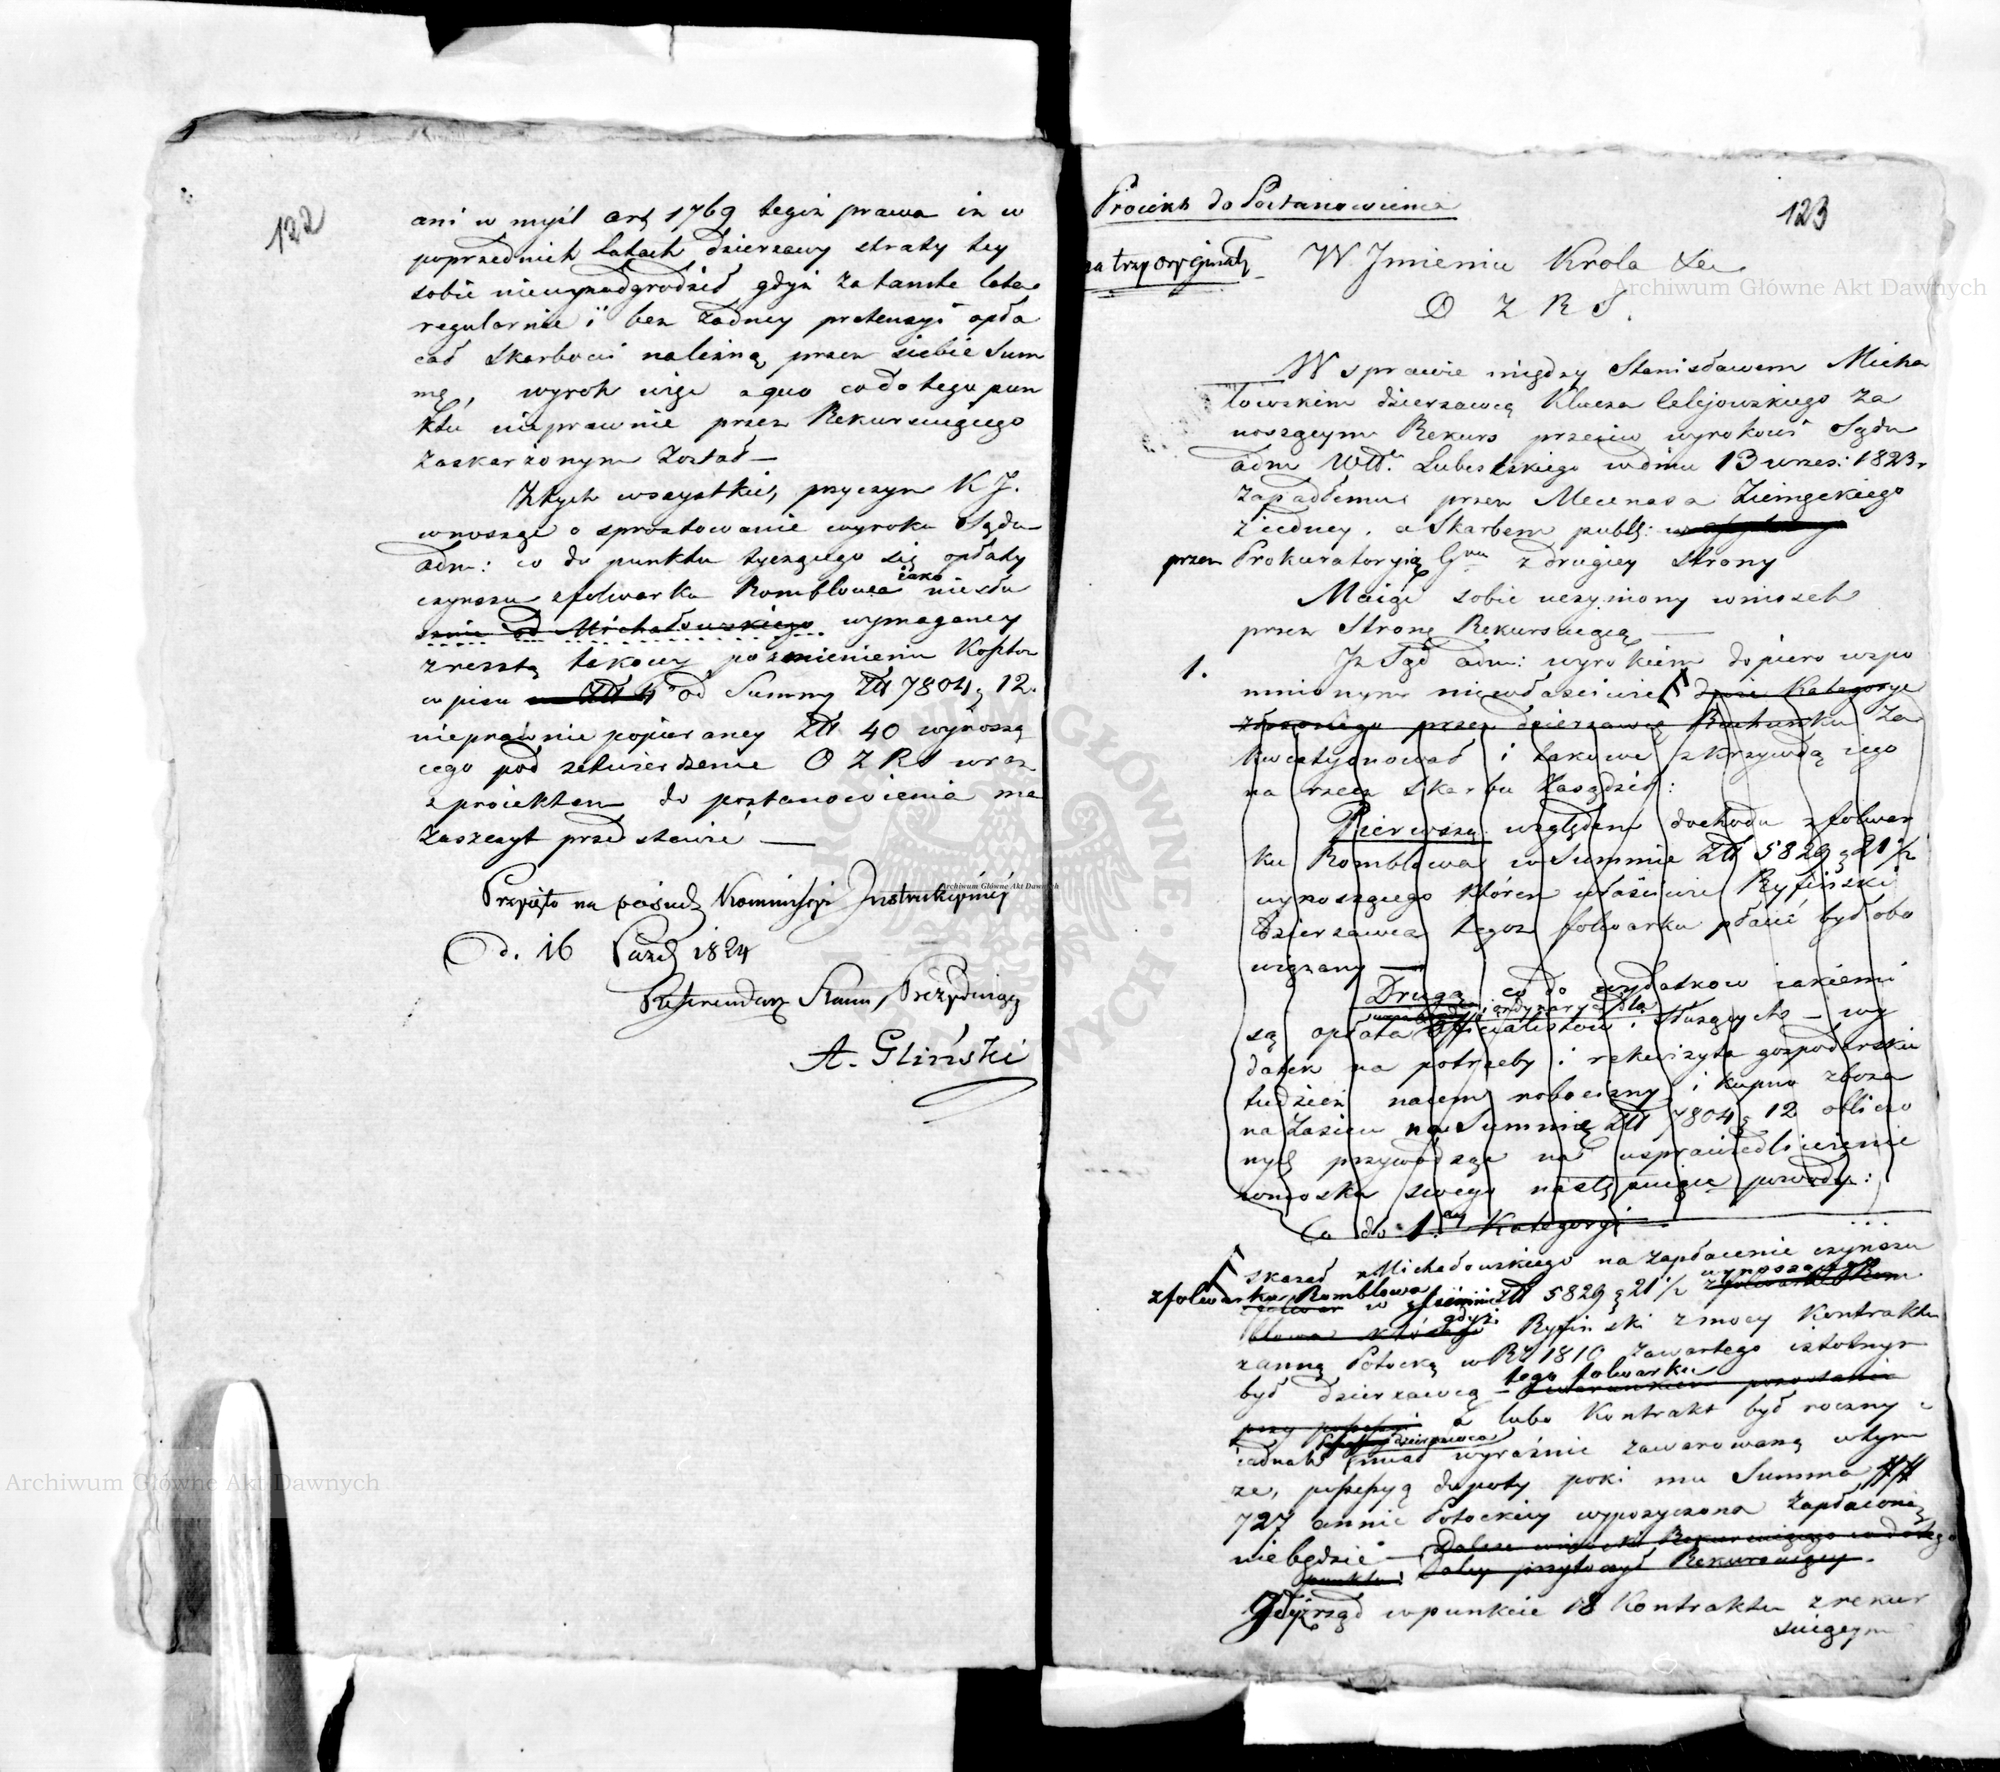 122
ani w myśl art 1769 tegoż prawa iż w
poprzednich latach dzierzawy straty tey
sobie niewynadgrodził gdyż za tamte lata
regularnie i bez żadney pretensyi opła
cał skarbowi należną przez siebie Sum
mę, wyrok więc a quo co do tego pun
ktu nieprawnie przez Rekursuiącego
zaskarżonym został —
Z tych wszystkich przyczyn K J.
wnosząc o sprostowanie wyroku Sądu
adm: co do punktu tyczącego się opłaty
czynszu z folwarku Rombłowa iako niesłu
sznie od Michałowskiego wymaganey
zresztą takowy po zmienieniu Kosztu
wpisu od Summy Złł 7804 g 12.
nieprawnie popieraney Złł 40 wynoszą
cego pod zatwierdzenie O Z R S wraz
z proiektem do postanowienia ma
zaszczyt przedstawić —
Przyięto na posiedz Kommissyi Instrukcyiney
d. 16 Paźdz 1824
Referendarz Stanu Prezyduiący
A. Gliński
Proiekt do Postanowienia
123
na trzy oryginały
W Jmieniu Krola &c
O Z R S.
W sprawie między Stanisławem Micha
łowskim dzierzawcą Klucza Celejowskiego za
noszącym Rekurs przeciw wyrokowi Sądu
adm Wdtt Lubelskiego w dniu 13 wrzes: 1823 r
zapadłemu przez Mecenasa Ziemęckiego
z iedney, a Skarbem publ:
przez Prokuratoryią Gną z drugiey strony
Maiąc sobie uczyniony wniosek
przez Stronę Rekursuiącą —
1. Iż Sąd adm: wyrokiem dopiero wspo
mnionym niewłaściwie dwie Kategorye
złożonego przez dzierzawcę Rachunku za
kwestyonował i takowe z krzywdą iego
na rzecz Skarbu zasądził:
Pierwszą względem dochodu z folwar
ku Rombłowa w Summie Złł 5829 g 21 1/2
wynoszącego któren właściwie Ryfiński
dzierzawca tegoż folwarku płacić był obo
wiązany —
Drugą co do wydatkow iakiemi
są opłata officyalistow i służących — wy
datek na potrzeby i rekwizyta gospodarskie
tudzież naiem robocizny i kupno zboża
na zasiew na Summę Złł 7804 g 12 obliczo
nych przywodząc na usprawiedliwienie
wniosku swego następuiące powody:
Co do 1ey Kategoryi
skazał Michałowskiego na zapłacenie czynszu
z folwarku Rombłowa w Summie Złł 5829 g 21 1/2 wynoszącego
gdyż Ryfiński z mocy Kontraktu
z anną Potocką w R 1810 zawartego istotnym
był dzierzawcą tego folwarku
a lubo Kontrakt był roczny
iednak miał wyraźnie zawarowaną w tym
że, possessyą dopoty poki mu Summa ##
727 annie Potockiey wypożyczona zapłaconą
niebędzie — Dalsze wnioski Rekursuiącego co do tego
punktu: Daley przytoczył Rekursuiący.
Gdyż rząd w punkcie 18 Kontraktu z rekur
suiącym